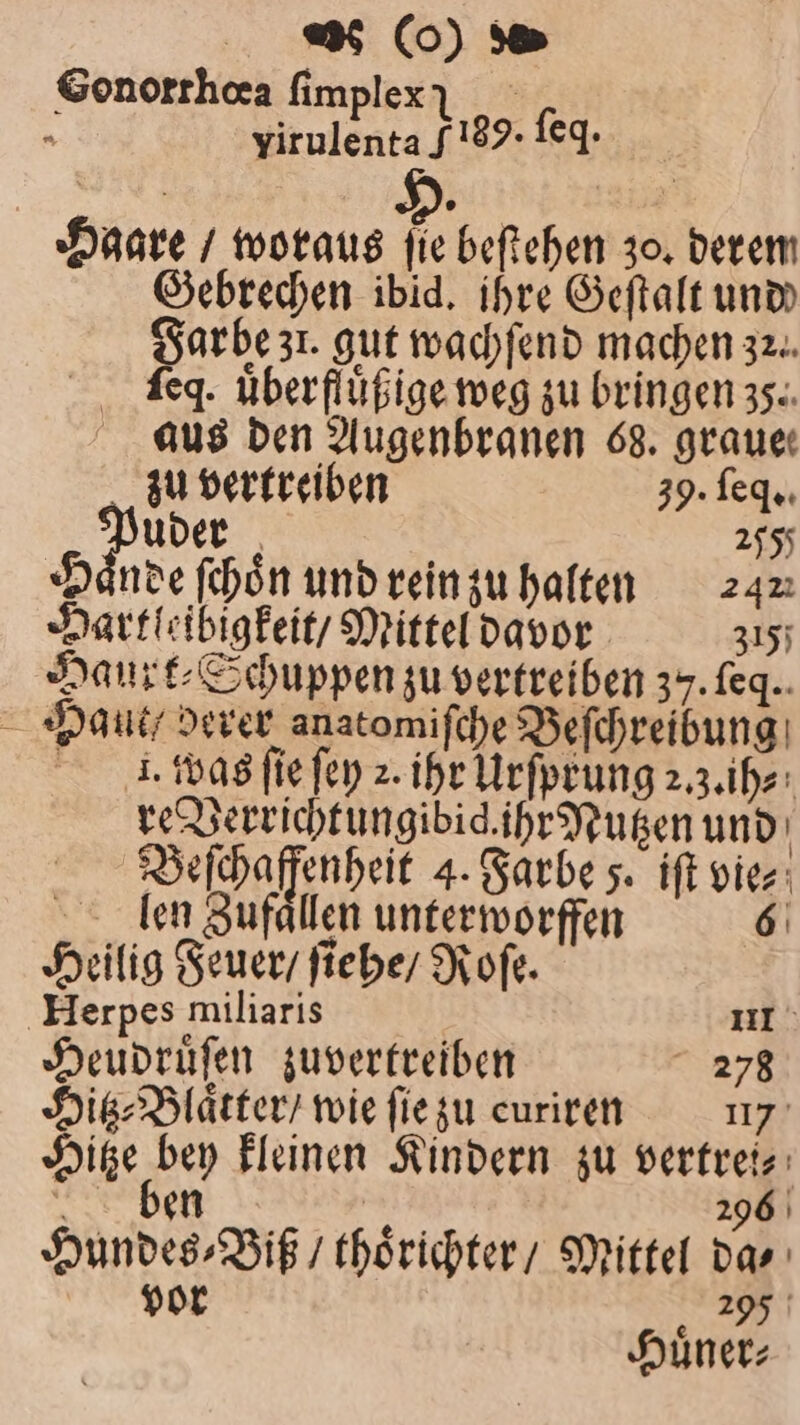 (o)
Gonorrhœa ſimplex }
virulenta } 189. ſeq.
H.
Haare / woraus ſie beſtehen 30. derem
Gebrechen ibid. ihre Geſtalt und
Farbe 31. gut wachſend machen 32.
ſeq. uͤberfluͤßige weg zu bringen 35.
aus den Augenbranen 68. graue
zu vertreiben 39. ſeq.
Puder 255
Haͤnde ſchoͤn und rein zu halten 242
Hartleibigkeit/ Mittel davor 315
Haupt⸗Schuppen zu vertreiben 37. ſeq.
Haut/ derer anatomiſche Beſchreibung
1. was ſie ſey 2. ihr Urſprung 2.3. ih⸗
re Verrichtung ibid. ihr Nutzen und
Beſchaffenheit 4. Farbe 5. iſt vie⸗
len Zufaͤllen unterworffen 6
Heilig Feuer/ ſiehe/ Roſe.
Herpes miliaris 111
Heudruͤſen zuvertreiben 278
Hitz⸗Blaͤtter/ wie ſie zu curiren 117
Hitze bey kleinen Kindern zu vertrei⸗
ben 296
Hundes⸗Biß / thoͤrichter / Mittel da⸗
vor 295
Huͤner⸗